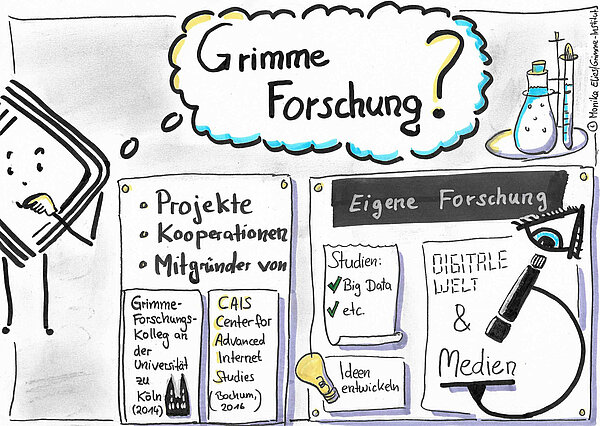 Grimme
Forschung?
• Projekte
• Kooperationen
• Mitgründer von
Grimme-
Forschungs-
Kolleg an
der
Universität
zu
Köln
(2014)
CAIS
Center for
Advanced
Internet
Studies
(Bochum,
2016)
Eigene Forschung
Studien:
✓ Big Data
✓ etc.
Ideen
entwickeln
DIGITALE
WELT
&
Medien
© Monika Elias/Grimme-Institut